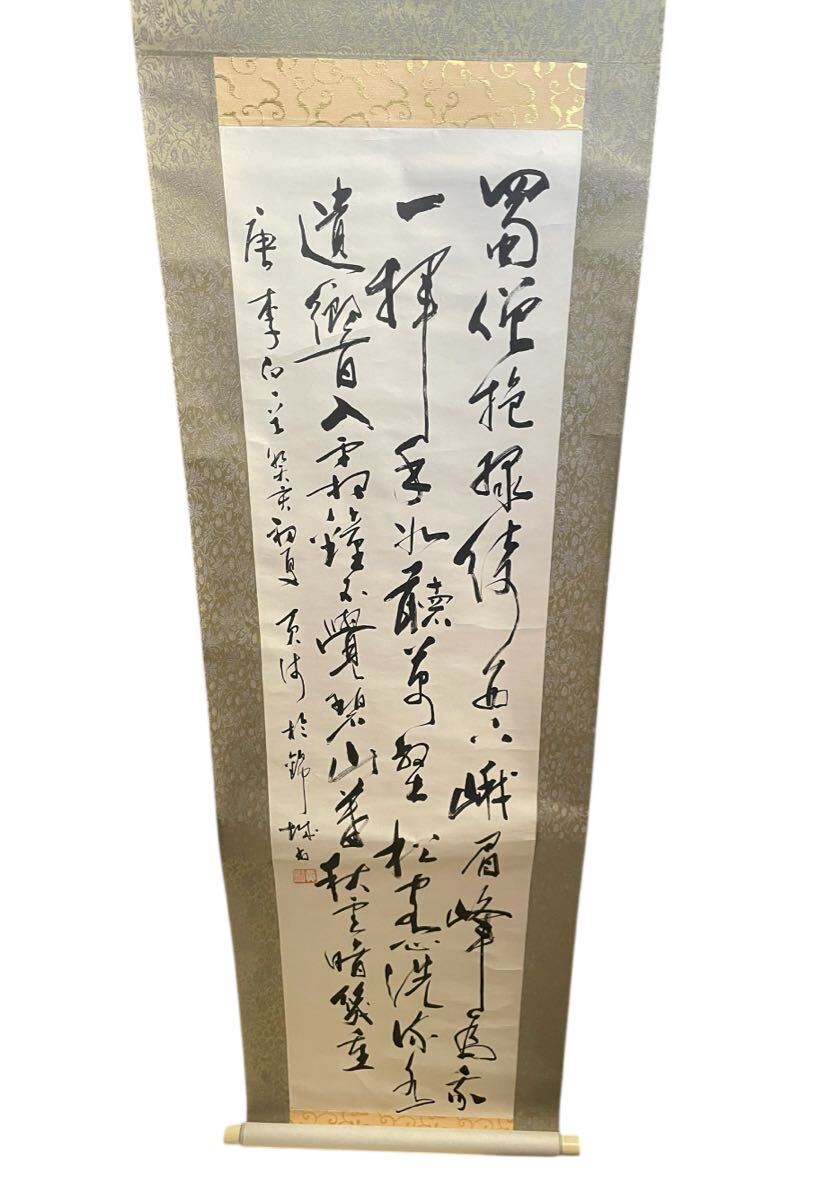 蜀僧抱綠綺西下峨眉峰為我
一揮手如聽萬壑松客心洗流水
遺響入霜鐘不覺碧山暮秋雲暗幾重
唐李白癸亥初夏於錦城